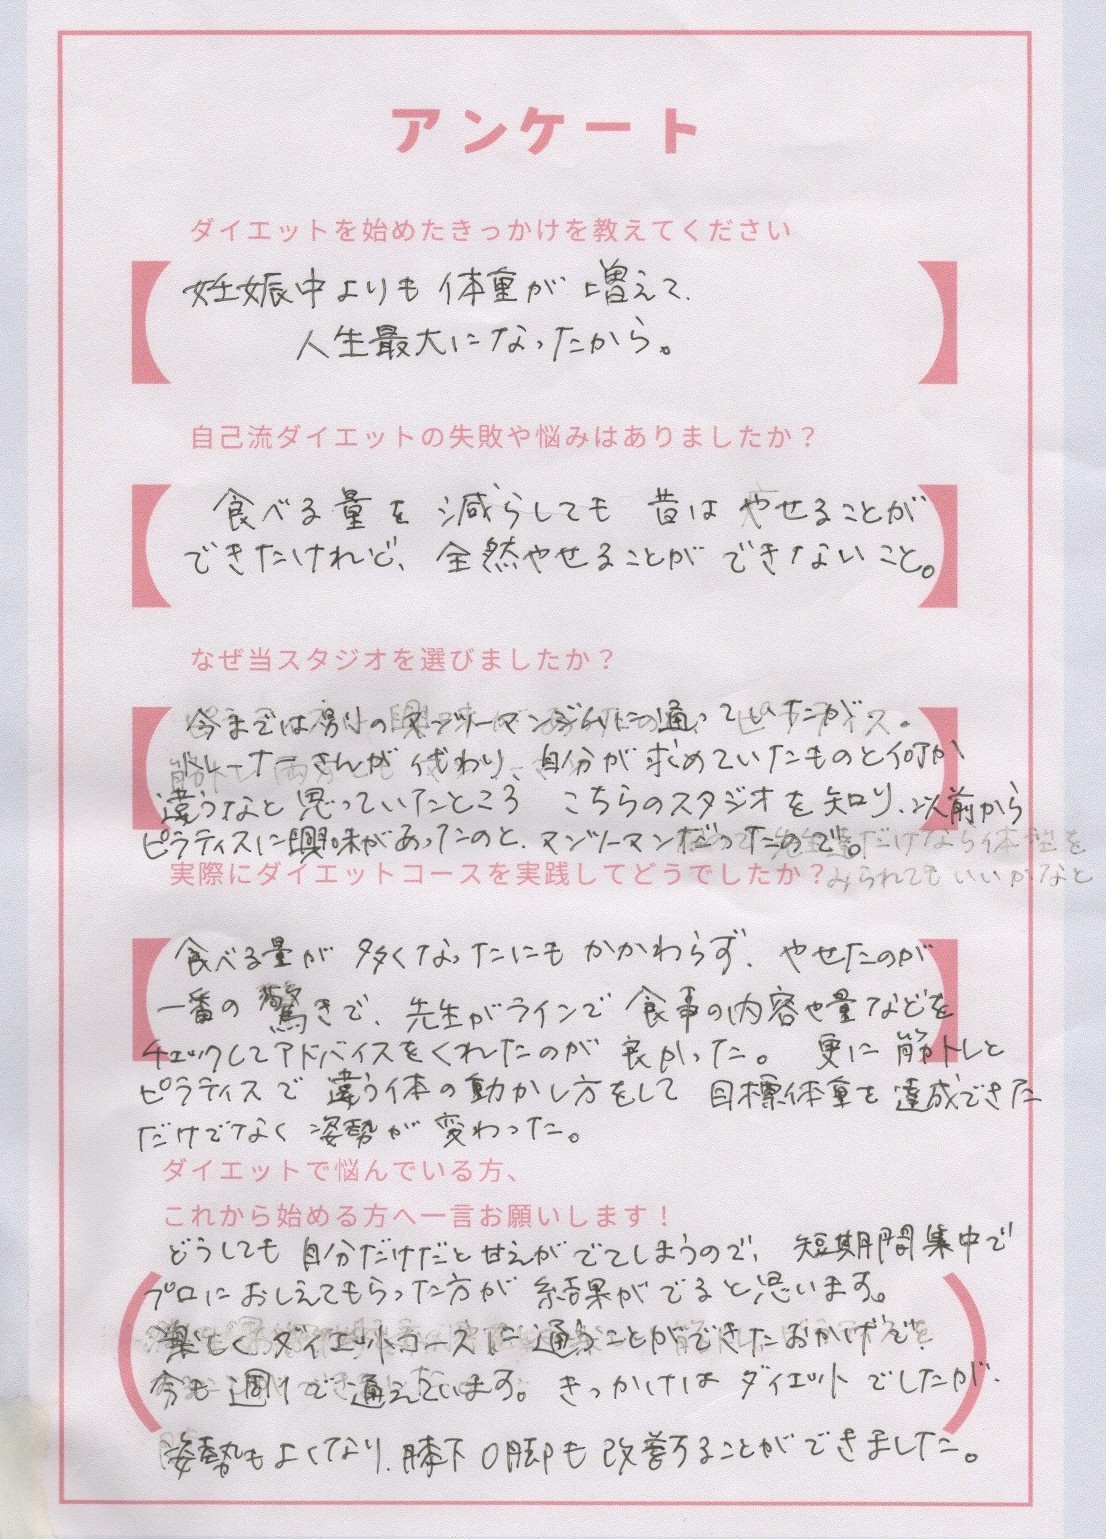 アンケート
ダイエットを始めたきっかけを教えてください
妊娠中よりも体重が増えて、
人生最大になったから。
自己流ダイエットの失敗や悩みはありましたか？
食べる量を減らしても昔はやせることが
できたけれど、全然やせることができないこと。
なぜ当スタジオを選びましたか？
今までは別のマンツーマンジムに通っていたが、
トレーナーさんが代わり、自分が求めていたものと何か
違うなと思っていたところ こちらのスタジオを知り、以前から
ピラティスに興味があったのと、マンツーマンだったので。
先生達だけなら体型を
実際にダイエットコースを実践してどうでしたか？
みられてもいいかなと
食べる量が多くなったにもかかわらず、やせたのが
一番の驚きで、先生がラインで食事の内容や量などを
チェックしてアドバイスをくれたのが良かった。更に筋トレと
ピラティスで違う体の動かし方をして目標体重を達成できた
だけでなく姿勢が変わった。
ダイエットで悩んでいる方、
これから始める方へ一言お願いします！
どうしても自分だけだと甘えがでてしまうので、短期間集中で
プロにおしえてもらった方が結果がでると思います。
楽しくダイエットコースに通うことができたおかげで
今も週1で通えています。きっかけはダイエットでしたが、
姿勢もよくなり、膝下O脚も改善することができました。